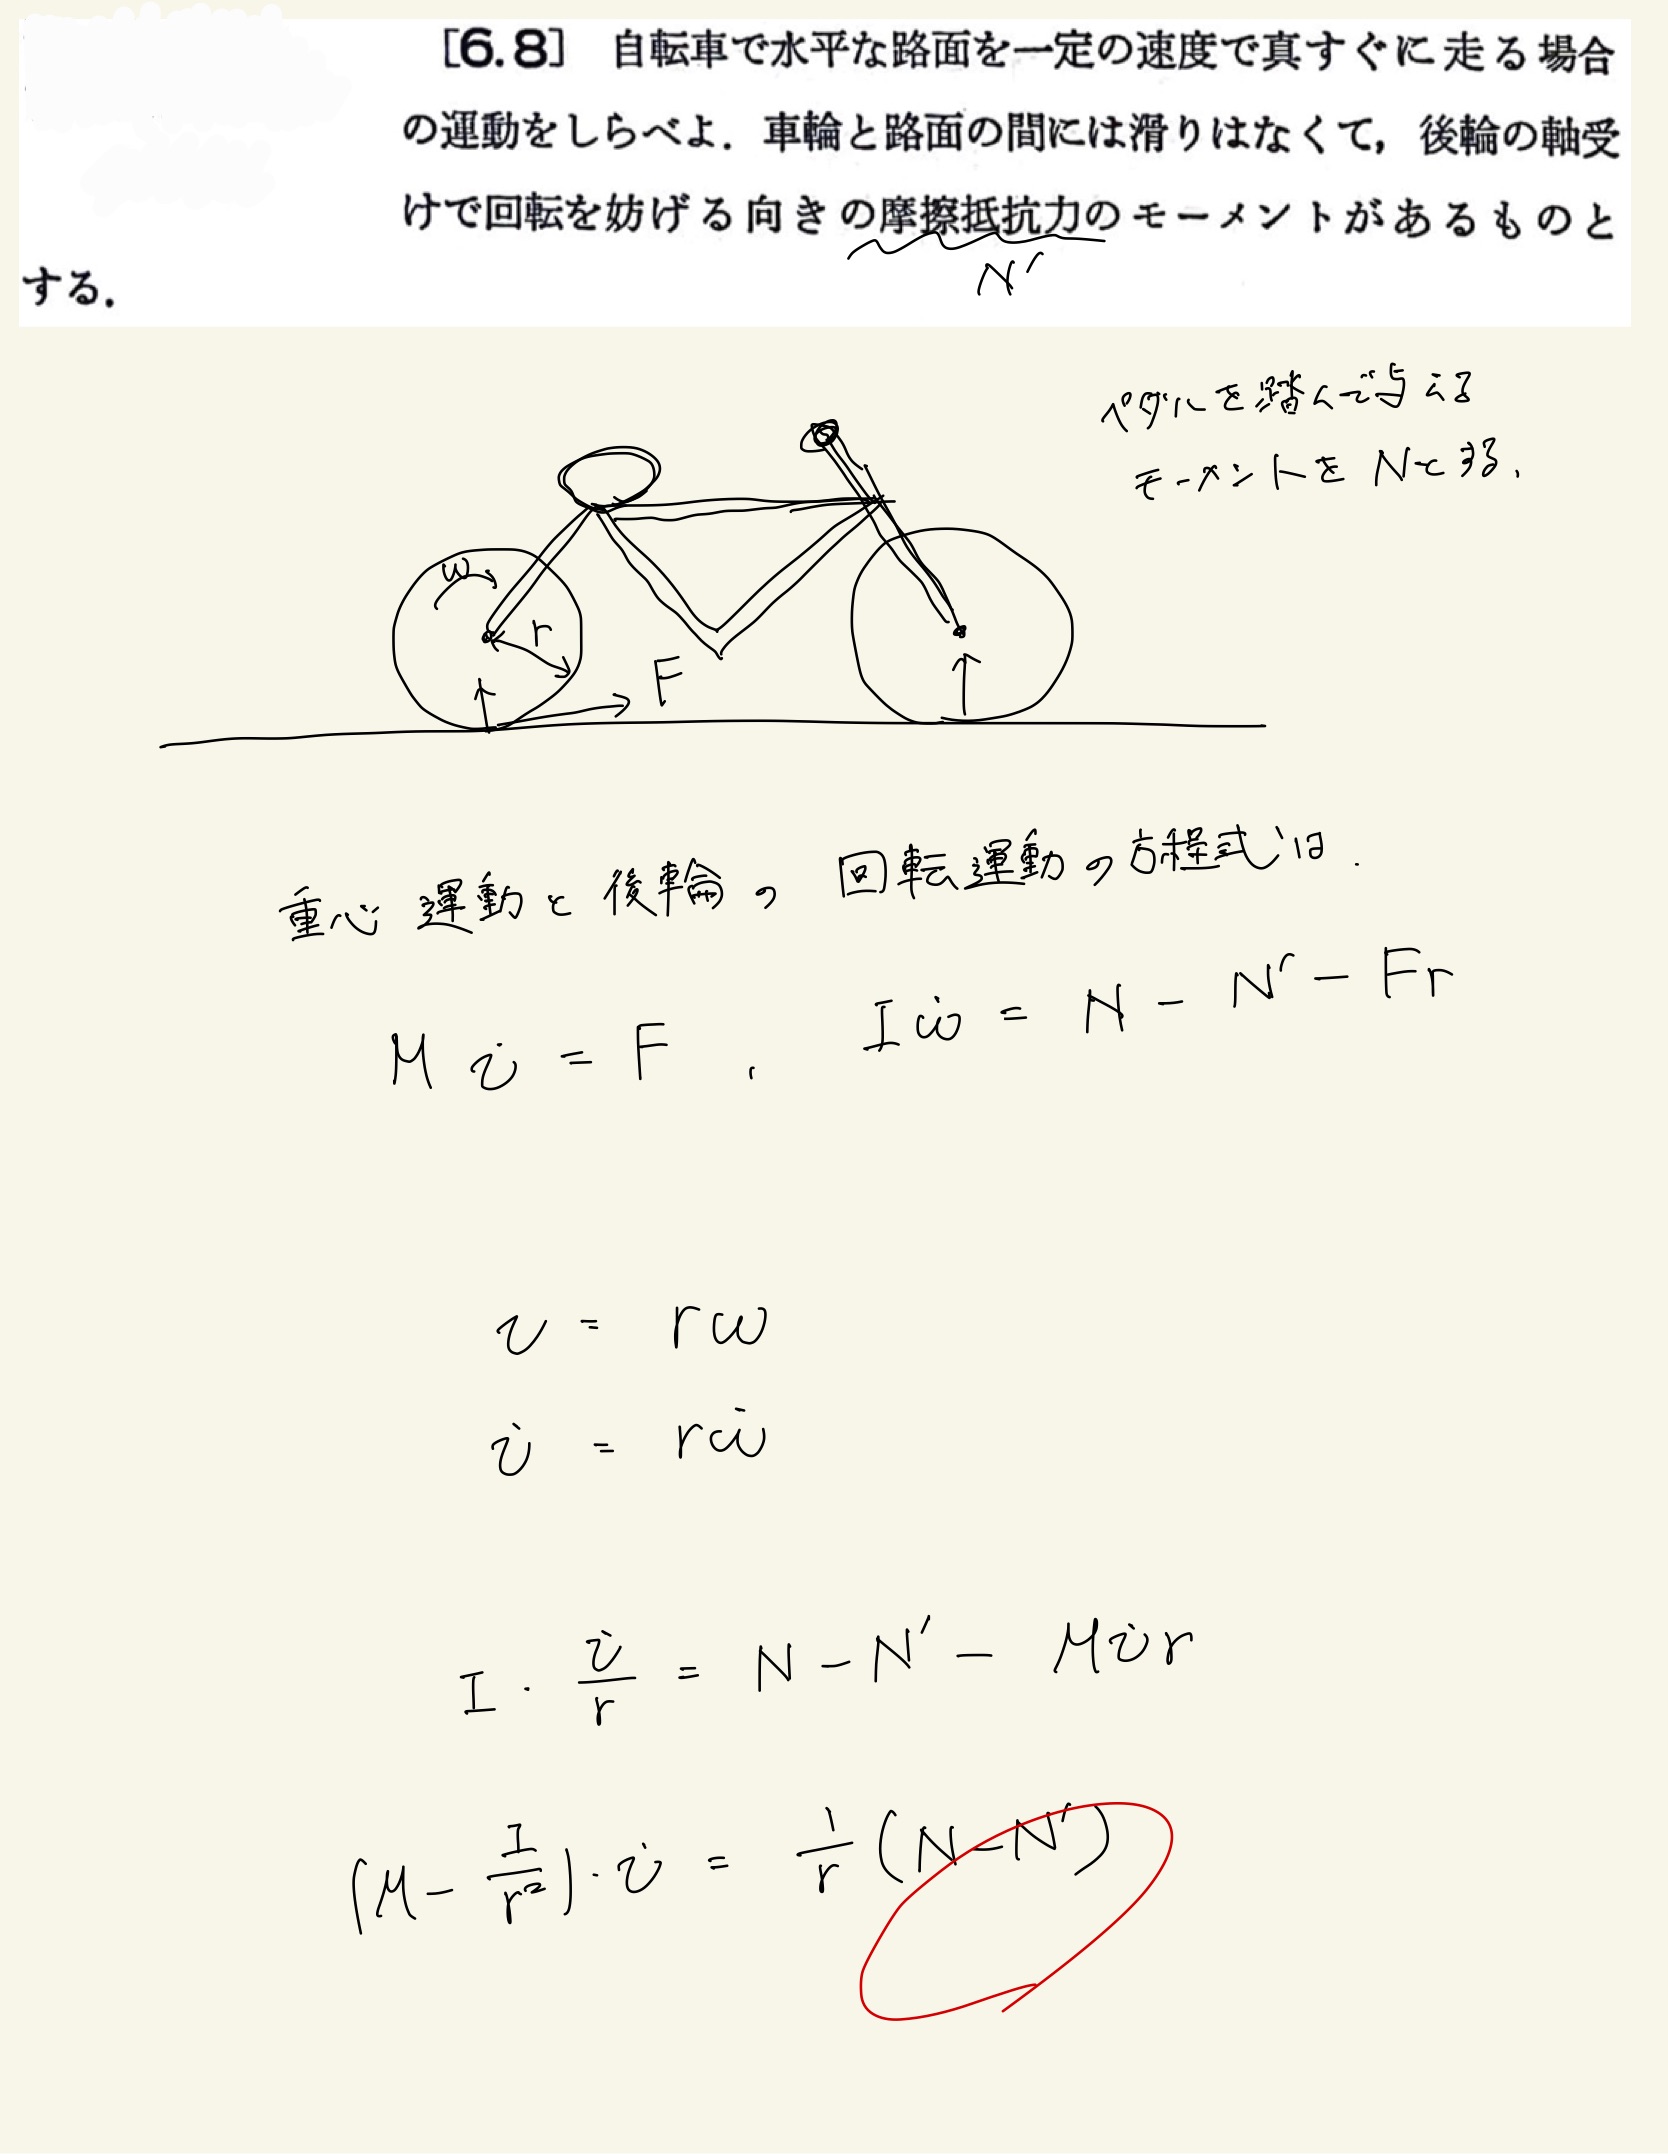 [6.8] 自転車で水平な路面を一定の速度で真すぐに走る場合
の運動をしらべよ．車輪と路面の間には滑りはなくて，後輪の軸受
けで回転を妨げる向きの摩擦抵抗力のモーメントがあるものと
N′
する．
ペダルを踏んで与える
モーメントをNとする．
ω
r
F
重心運動と後輪の回転運動の方程式は．
M v̇ = F ， I ω̇ = N − N′ − Fr
v = rω
v̇ = rω̇
I · v̇/r = N − N′ − M v̇ r
(M − I/r²) · v̇ = 1/r (N − N′)